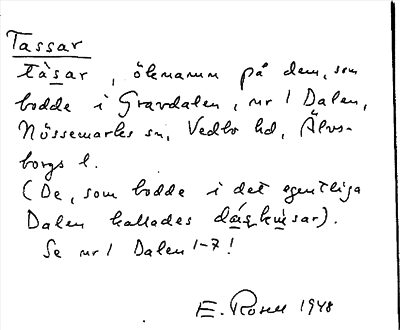 Tassar
tàsar, öknamn på dem, som
bodde i Gravdalen, nr 1 Dalen,
Nössemarks sn, Vedbo hd, Älvs-
borgs l.
(De, som bodde i det egentliga
Dalen kallades
Se nr 1 Dalen 1-7!
E. Rosell 1948